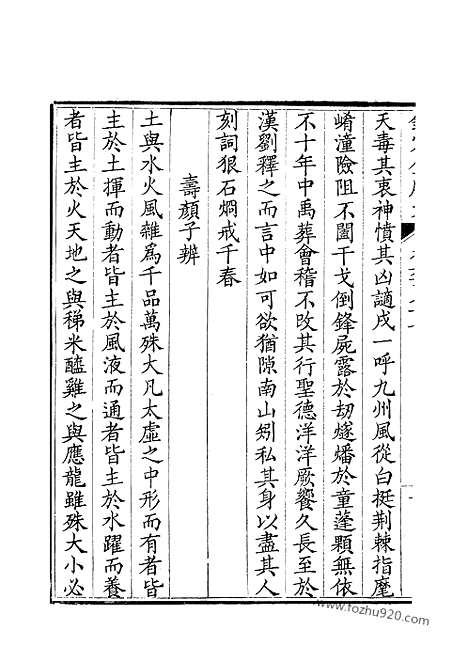 天毒其衷神憤其凶謫戍一呼九州風從白挺荆棘指麾
崤潼險阻不闔干戈倒鋒屍露於刼燧燔於童蓬顆無依
不十年中禹葬會稽不改其行聖德洋洋厥饗久長至於
漢劉釋之而言中如可欲猶隙南山矧私其身以盡其人
刻詞狠石烱戒千春
壽顔子辨
土與水火風雜爲千品萬殊大凡太虛之中形而有者皆
主於土揮而動者皆主於風液而通者皆主於水躍而養
者皆主於火天地之與稊米醯雞之與應龍雖殊大小必
www.fozhu920.com